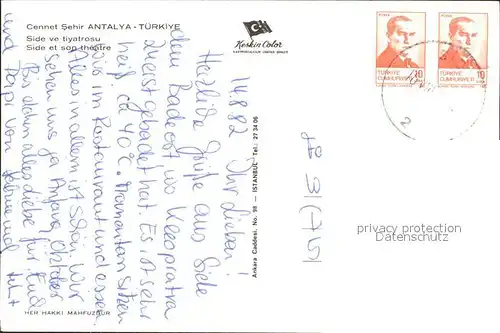 Cennet Şehir ANTALYA - TÜRKİYE
Side ve tiyatrosu
Side et son théatre
Keskin Color
POSTA
POSTA
TÜRKİYE
CUMHURİYETİ
10
TÜRKİYE
CUMHURİYETİ
10
14.8.82 Ihr Lieben!
Herzliche Grüße aus Side
dem Badeort wo Kleopatra
zuerst gebadet hat. Es ist sehr
heiß ca 40°. Momentan sitzen
wir im Restaurant und essen.
Alles in allem ist schön. Wir
sehen uns ja Anfang Oktober
Bis dahin alles Liebe für Euch
und Papi von
Ankara Caddesi. No. 98 - İSTANBUL Tel.: 27 34 06
HER HAKKI MAHFUZDUR
privacy protection
watermark